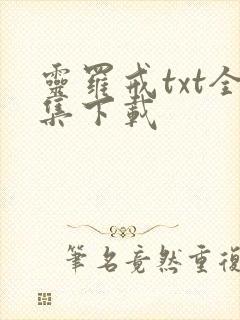 靈羅戒txt全
集下載
筆名竟然重復